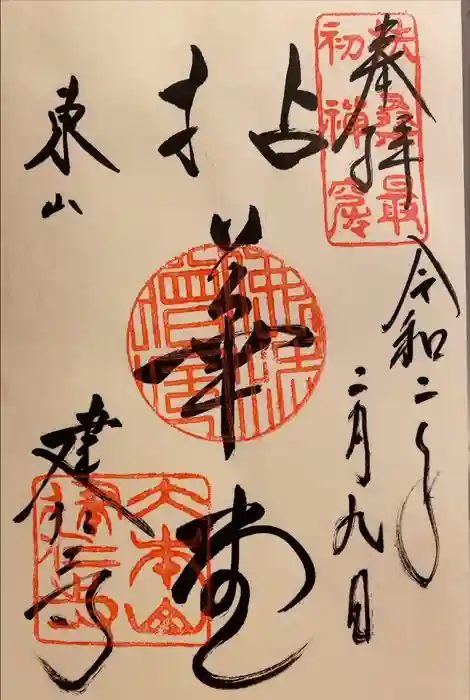 奉拝
扶桑最
初禅窟
令和二年
二月九日
拈華堂
東山
建仁寺
大本山
建仁寺